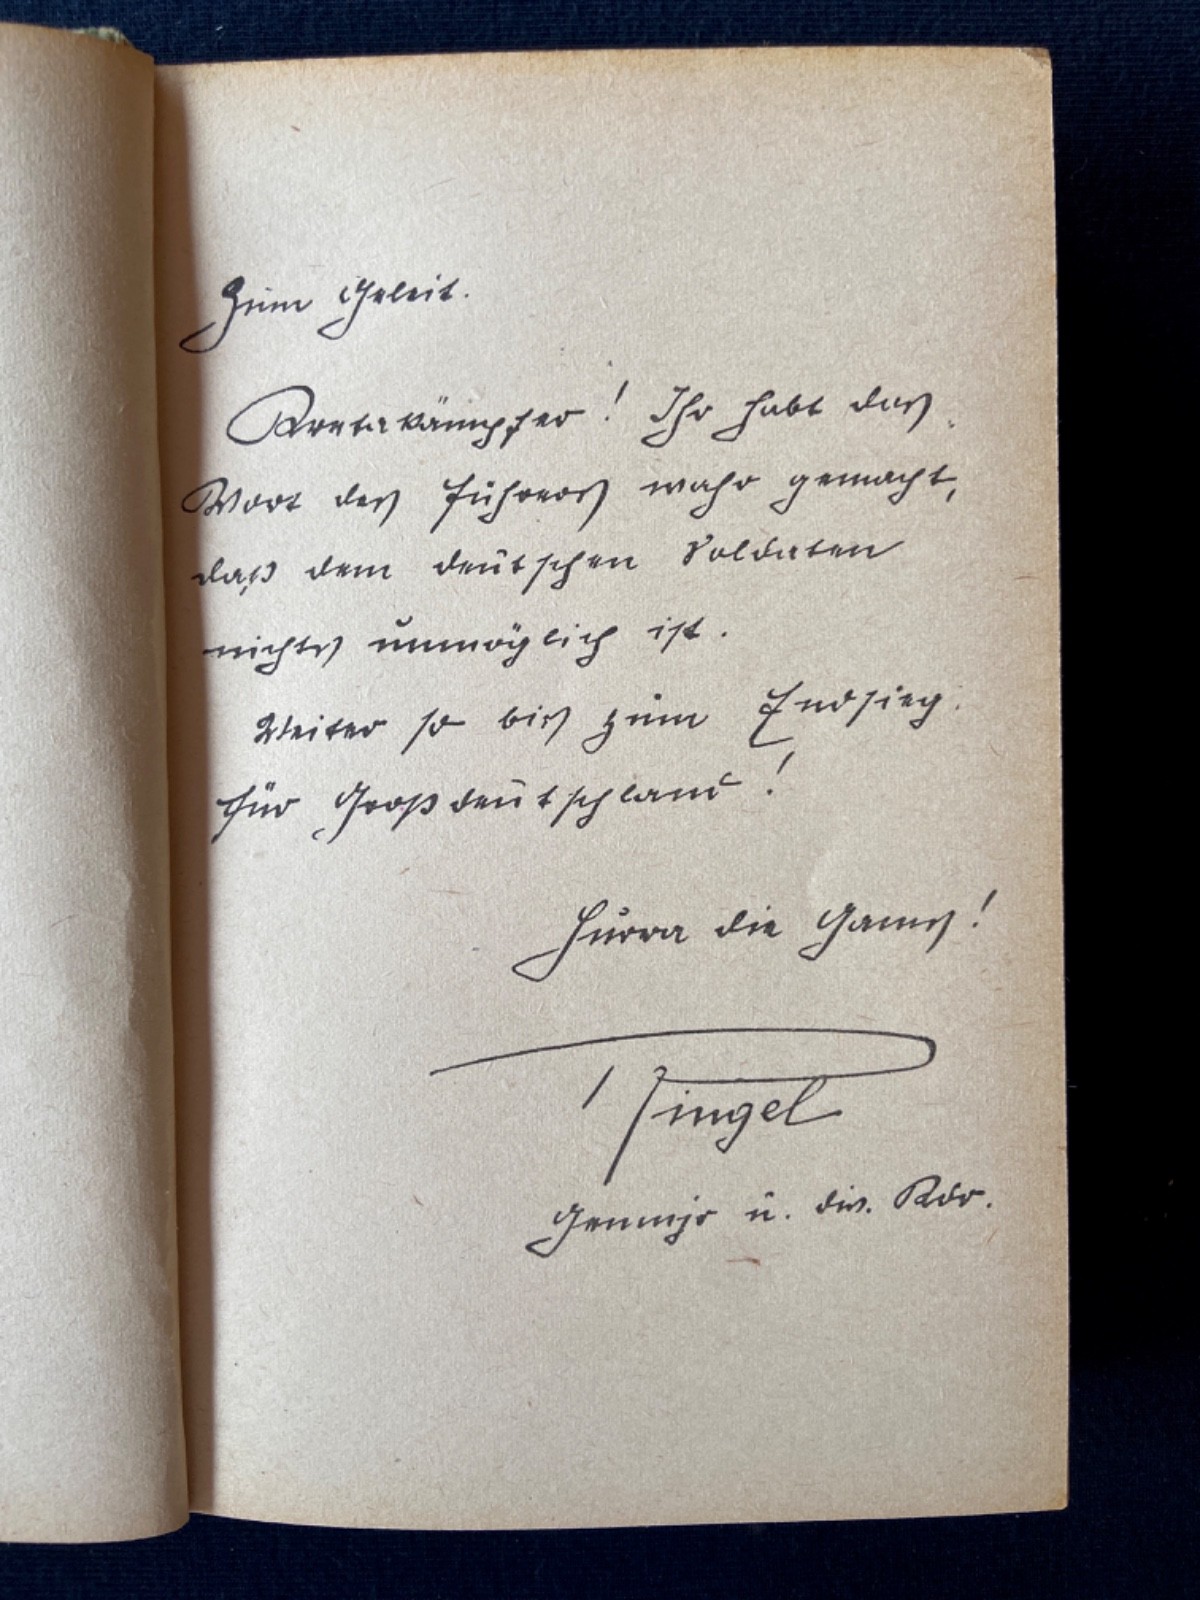 Zum Geleit.
Kretakämpfer! Ihr habt das
Wort des Führers wahr gemacht,
daß dem deutschen Soldaten
nichts unmöglich ist.
Weiter so bis zum Endsieg
für Großdeutschland!
Hurra die Gams!
Ringel
Genmjr u. div. Kdr.